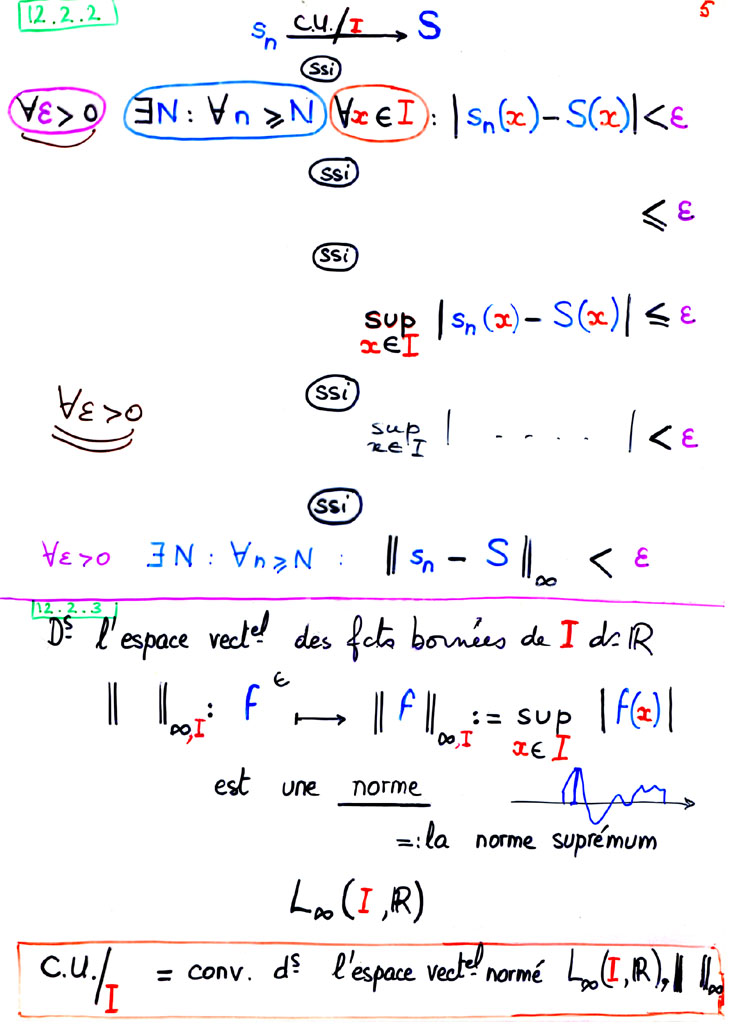 12.2.2
5
sₙ —C.U./I→ S
ssi
∀ε > 0 ∃N : ∀n ⩾ N ∀x ∈ I : |sₙ(x) − S(x)| < ε
ssi
⩽ ε
ssi
sup |sₙ(x) − S(x)| ⩽ ε
x ∈ I
ssi
∀ε > 0 sup | ..... | < ε
x ∈ I
ssi
∀ε > 0 ∃N : ∀n ⩾ N : ‖ sₙ − S ‖∞ < ε
12.2.3
Dˢ l'espace vectᵉˡ des fcts bornées de I dˢ ℝ
‖ ‖∞,I : f ∈ ⟼ ‖ f ‖∞,I := sup |f(x)|
x ∈ I
est une norme
=: la norme suprémum
L∞(I, ℝ)
C.U./I = conv. dˢ l'espace vectᵉˡ normé L∞(I, ℝ), ‖ ‖∞